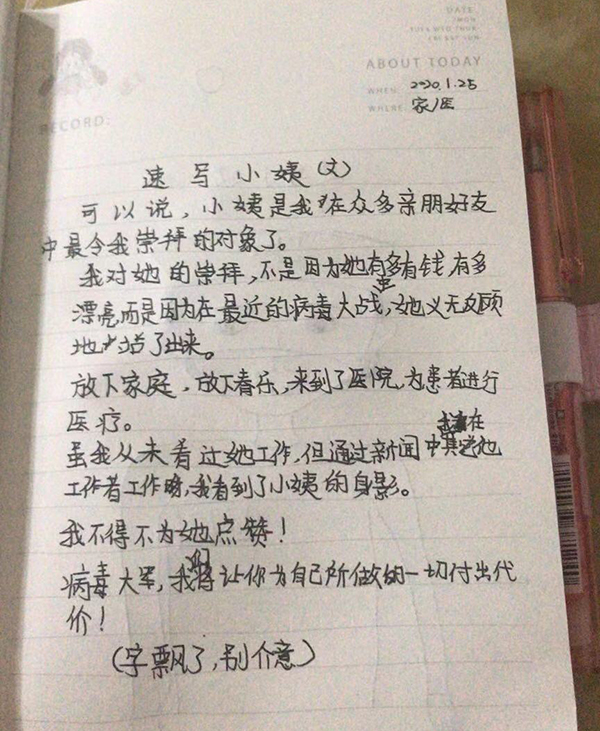 DATE
MON
TUES WED THUR
FRI SAT SUN
ABOUT TODAY
WHEN: 2020.1.25
WHERE: 家/医
RECORD:
速写小姨(文)
可以说，小姨是我在众多亲朋好友
中最令我崇拜的对象了。
我对她的崇拜，不是因为她有多有钱有多
漂亮而是因为在最近的病毒大战中，她义无反顾
地站了出来。
放下家庭，放下春乐，来到了医院，为患者进行
医疗。
虽我从未看过她工作，但通过新闻中其他
工作者工作时，我看到了小姨的身影。
我不得不为她点赞！
病毒大军，我将让你为自己所做的一切付出代
价！
(字飘了，别介意)